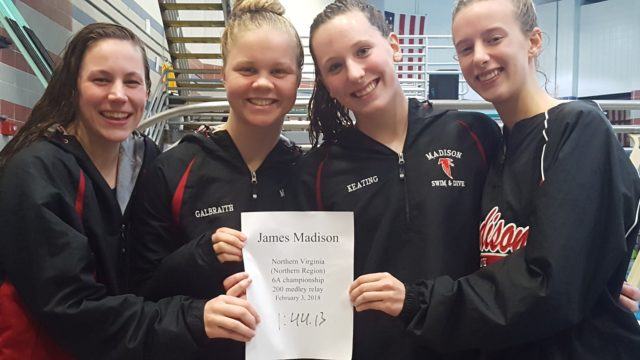 MADISON
SWIM & DIVE
GALBRAITH
M
KEATING
Madison
James Madison
Northern Virginia
(Northern Region)
6A championship
200 medley relay
February 3, 2018
1:44.13